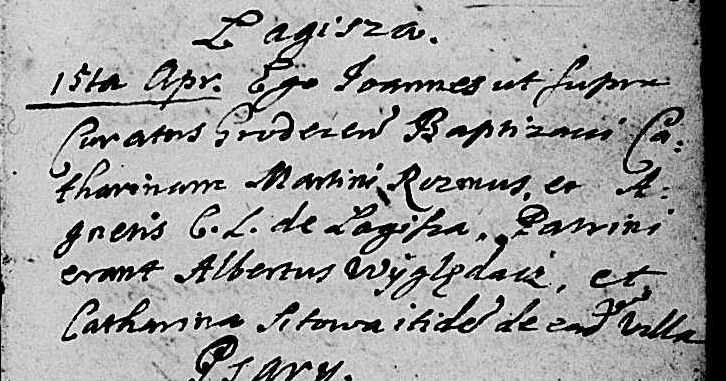 Lagisza.
15ta Apr. Ego Joannes ut supra
Curatus Grodecen Baptizavi Ca=
tharinam Martini Rozmus, et A=
gnetis C. L. de Lagisza, Patrini
erant Albertus Wÿględacz, et
Catharina Sitowa itide de ead Villa
Psary.